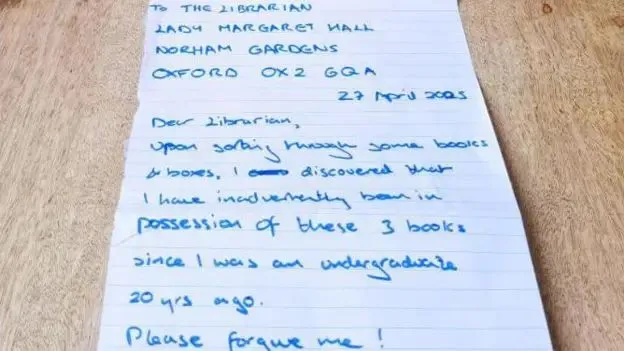 To THE LIBRARIAN
LADY MARGARET HALL
NORHAM GARDENS
OXFORD OX2 6QA
27 April 2025
Dear Librarian,
Upon sorting through some books
& boxes, I discovered that
I have inadvertently been in
possession of these 3 books
since I was an undergraduate
20 yrs ago.
Please forgive me!